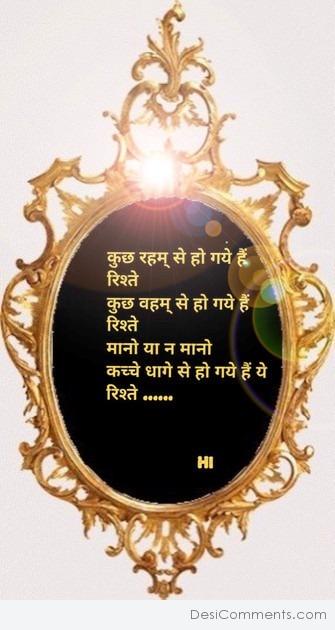 कुछ रहम् से हो गये हैं
रिश्ते
कुछ वहम् से हो गये हैं
रिश्ते
मानो या न मानो
कच्चे धागे से हो गये हैं ये
रिश्ते ......
HI
DesiComments.com